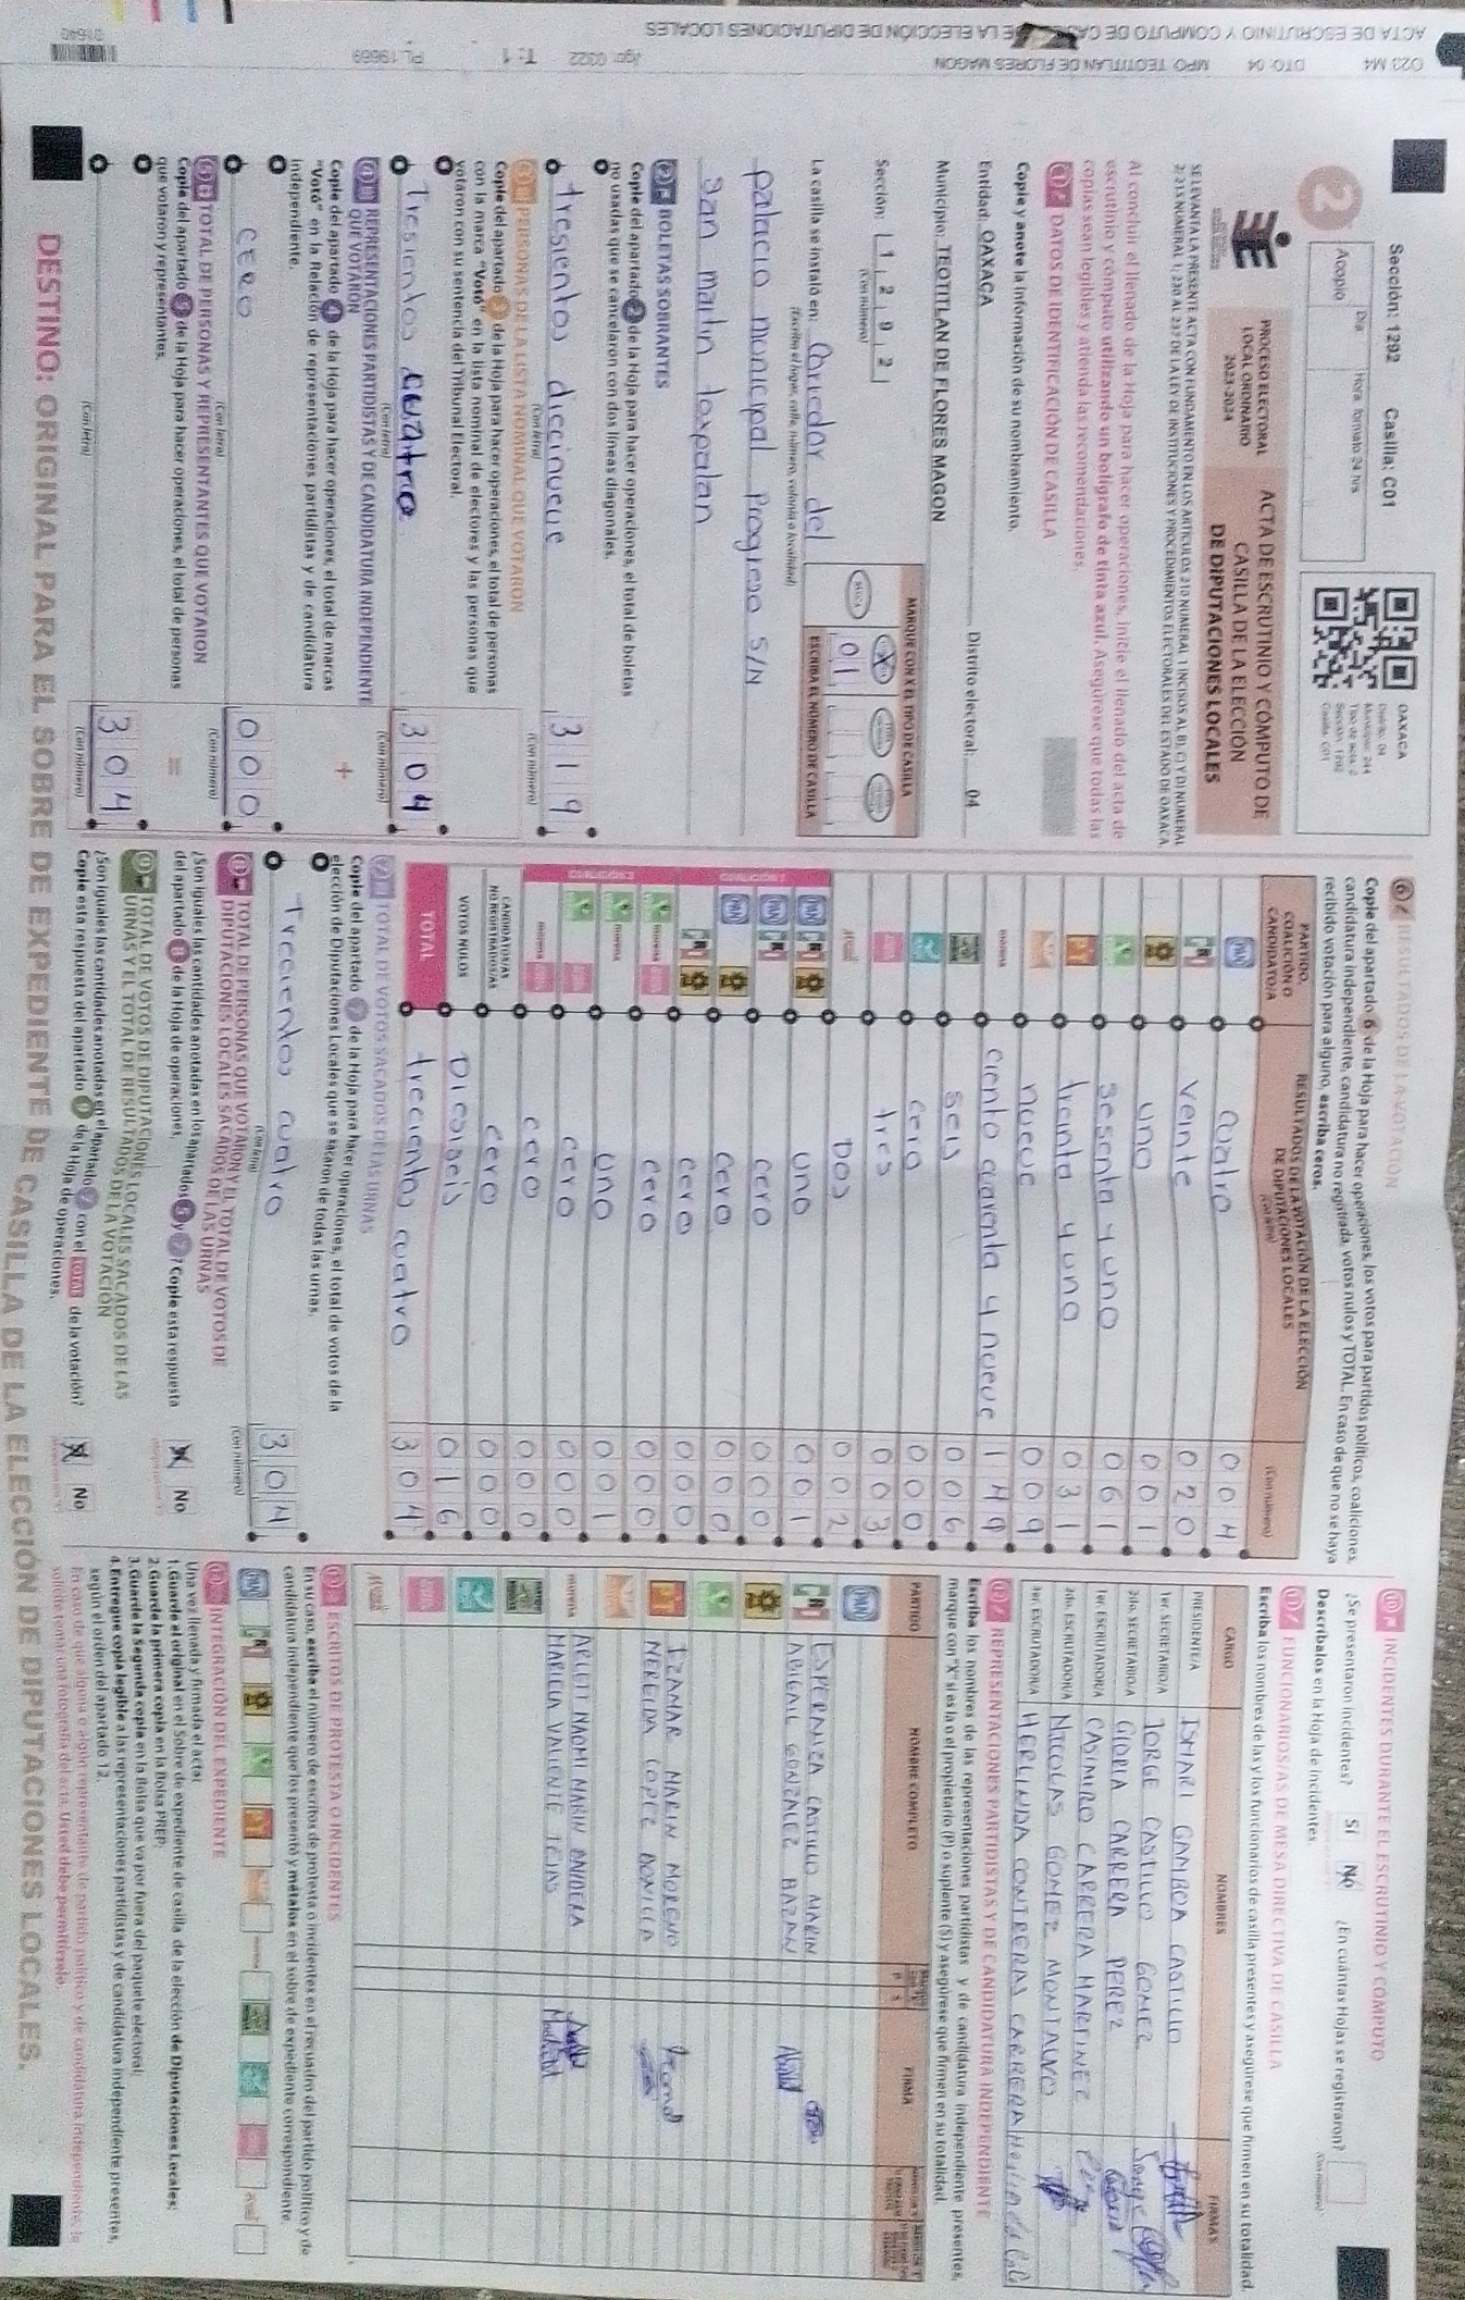 Sección: 1292 Casilla: C01
2
Acopio
Día:
Hora formato 24 hrs
OAXACA
Distrito: 04
Municipio: 244
Tipo de acta: 2
Sección: 1292
Casilla: C01
PROCESO ELECTORAL
LOCAL ORDINARIO
2023-2024
ACTA DE ESCRUTINIO Y CÓMPUTO DE
CASILLA DE LA ELECCIÓN
DE DIPUTACIONES LOCALES
Al concluir el llenado de la Hoja para hacer operaciones, inicie el llenado del acta de
escrutinio y cómputo utilizando un bolígrafo de tinta azul. Asegúrese que todas las
copias sean legibles y atienda las recomendaciones.
1 DATOS DE IDENTIFICACIÓN DE CASILLA
Copie y anote la información de su nombramiento.
Entidad: OAXACA Distrito electoral: 04
Municipio: TEOTITLAN DE FLORES MAGON
Sección: 1 2 9 2
(Con número)
MARQUE CON X EL TIPO DE CASILLA
X
ESCRIBA EL NÚMERO DE CASILLA
01
La casilla se instaló en: Coriedor del
(Escriba el lugar, calle, número, colonia o localidad)
palacio municipal Progreso S/N
san martin toxpalan
2 BOLETAS SOBRANTES
Copie del apartado 2 de la Hoja para hacer operaciones, el total de boletas
no usadas que se cancelaron con dos líneas diagonales.
tresientos diecinueve 319
(Con letra) (Con número)
3 PERSONAS DE LA LISTA NOMINAL QUE VOTARON
Copie del apartado 3 de la Hoja para hacer operaciones, el total de personas
con la marca "Votó" en la lista nominal de electores y las personas que
votaron con su sentencia del Tribunal Electoral.
Tresientos cuatro 304
(Con letra) (Con número)
4 REPRESENTACIONES PARTIDISTAS Y DE CANDIDATURA INDEPENDIENTE
QUE VOTARON
Copie del apartado 4 de la Hoja para hacer operaciones, el total de marcas
"Votó" en la Relación de representaciones partidistas y de candidatura
independiente.
+
cero 000
(Con letra) (Con número)
5 TOTAL DE PERSONAS Y REPRESENTANTES QUE VOTARON
Copie del apartado 5 de la Hoja para hacer operaciones, el total de personas
que votaron y representantes.
=
304
(Con letra) (Con número)
6 RESULTADOS DE LA VOTACIÓN
Copie del apartado 6 de la Hoja para hacer operaciones, los votos para partidos políticos, coaliciones,
candidatura independiente, candidatura no registrada, votos nulos y TOTAL. En caso de que no se haya
recibido votación para alguno, escriba ceros.
PARTIDO,
COALICIÓN O
CANDIDATO/A
RESULTADOS DE LA VOTACIÓN DE LA ELECCIÓN
DE DIPUTACIONES LOCALES
(Con letra)
(Con número)
PAN Cuatro 004
PRI veinte 020
uno 001
sesenta y uno 061
PT treinta y uno 031
nueve 009
morena ciento cuarenta y nueve 149
seis 006
cero 000
tres 003
Dos 002
PAN PRI uno 001
PAN PRI cero 000
PAN cero 000
PRI cero 000
morena cero 000
morena uno 001
cero 000
morena cero 000
CANDIDATOS/AS
NO REGISTRADOS/AS cero 000
VOTOS NULOS Diesiseis 016
TOTAL trecientos cuatro 304
7 TOTAL DE VOTOS SACADOS DE LAS URNAS
Copie del apartado 7 de la Hoja para hacer operaciones, el total de votos de la
elección de Diputaciones Locales que se sacaron de todas las urnas.
Trecientos cuatro 304
(Con letra) (Con número)
8 TOTAL DE PERSONAS QUE VOTARON Y EL TOTAL DE VOTOS DE
DIPUTACIONES LOCALES SACADOS DE LAS URNAS
¿Son iguales las cantidades anotadas en los apartados 5 y 7? Copie esta respuesta
del apartado 8 de la Hoja de operaciones.
X No
9 TOTAL DE VOTOS DE DIPUTACIONES LOCALES SACADOS DE LAS
URNAS Y EL TOTAL DE RESULTADOS DE LA VOTACIÓN
¿Son iguales las cantidades anotadas en el apartado 7 con el TOTAL de la votación?
Copie esta respuesta del apartado 9 de la Hoja de operaciones.
X No
10 INCIDENTES DURANTE EL ESCRUTINIO Y CÓMPUTO
¿Se presentaron incidentes? Sí No ¿En cuántas Hojas se registraron?
(Con número)
Descríbalos en la Hoja de incidentes.
11 FUNCIONARIOS/AS DE MESA DIRECTIVA DE CASILLA
Escriba los nombres de las y los funcionarios de casilla presentes y asegúrese que firmen en su totalidad.
CARGO NOMBRES FIRMAS
PRESIDENTE/A ISMARI GAMBOA CASTILLO
1er. SECRETARIO/A JORGE CASTILLO GOMEZ
2do. SECRETARIO/A GLORIA CARRERA PEREZ
1er. ESCRUTADOR/A CASIMIRO CARRERA MARTINEZ
2do. ESCRUTADOR/A NICOLAS GOMEZ MONTALVO
3er. ESCRUTADOR/A HERLINDA CONTRERAS CARRERA
12 REPRESENTACIONES PARTIDISTAS Y DE CANDIDATURA INDEPENDIENTE
Escriba los nombres de las representaciones partidistas y de candidatura independiente presentes,
marque con "X" si es la o el propietario (P) o suplente (S) y asegúrese que firmen en su totalidad.
PARTIDO NOMBRE COMPLETO FIRMA
PAN
PRI ESPERANZA CASTILLO MARIN
ABIGAIL GONZALEZ BAZAN
PT IZAMAR MARIN MORENO
NEREIDA LOPEZ BONILLA
morena ARLETT NAOMI MARIN BANDERA
MARICIA VALIENTE TEJAS
13 ESCRITOS DE PROTESTA O INCIDENTES
En su caso, escriba el número de escritos de protesta o incidentes en el recuadro del partido político y de
candidatura independiente que los presentó y métalos en el sobre de expediente correspondiente.
14 INTEGRACIÓN DEL EXPEDIENTE
Una vez llenada y firmada el acta:
1. Guarde el original en el Sobre de expediente de casilla de la elección de Diputaciones Locales;
2. Guarde la primera copia en la Bolsa PREP;
3. Guarde la Segunda copia en la Bolsa que va por fuera del paquete electoral;
4. Entregue copia legible a las representaciones partidistas y de candidatura independiente presentes,
según el orden del apartado 12.
En caso de que alguna o algún representante de partido político y de candidatura independiente, le
solicite tomar una fotografía del acta, Usted debe permitírselo.
DESTINO: ORIGINAL PARA EL SOBRE DE EXPEDIENTE DE CASILLA DE LA ELECCIÓN DE DIPUTACIONES LOCALES.
023 M4 DTO: 04 MPO: TEOTITLAN DE FLORES MAGON
T: 1 PL: 19669
01640